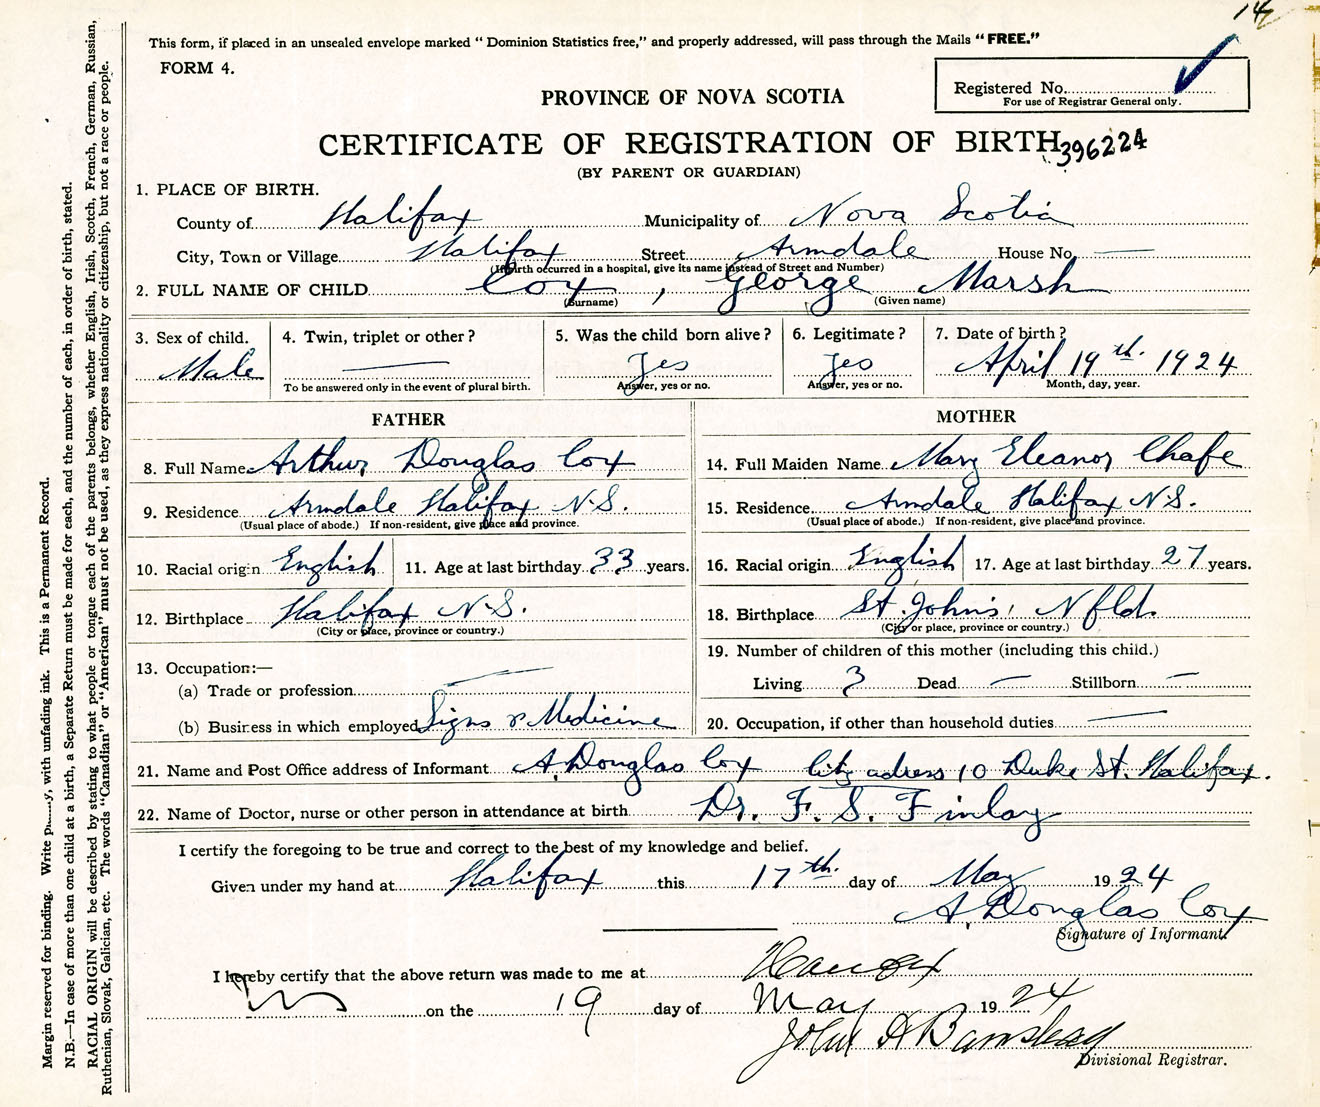 14
This form, if placed in an unsealed envelope marked “ Dominion Statistics free,” and properly addressed, will pass through the Mails “ FREE.”
FORM 4.
Registered No.
For use of Registrar General only.
PROVINCE OF NOVA SCOTIA
CERTIFICATE OF REGISTRATION OF BIRTH
396224
(BY PARENT OR GUARDIAN)
1. PLACE OF BIRTH.
County of Halifax Municipality of Nova Scotia
City, Town or Village Halifax Street Armdale House No. —
(If birth occurred in a hospital, give its name instead of Street and Number)
2. FULL NAME OF CHILD Cox , George Marsh
(Surname) (Given name)
3. Sex of child. 4. Twin, triplet or other? 5. Was the child born alive? 6. Legitimate? 7. Date of birth?
Male — Yes Yes April 19th. 1924
To be answered only in the event of plural birth. Answer, yes or no. Answer, yes or no. Month, day, year.
FATHER
8. Full Name Arthur Douglas Cox
9. Residence Armdale Halifax N.S.
(Usual place of abode.) If non-resident, give place and province.
10. Racial origin English 11. Age at last birthday 33 years.
12. Birthplace Halifax N.S.
(City or place, province or country.)
13. Occupation:—
(a) Trade or profession —
(b) Business in which employed Signs & Medicine
MOTHER
14. Full Maiden Name Mary Eleanor Chafe
15. Residence Armdale Halifax N.S.
(Usual place of abode.) If non-resident, give place and province.
16. Racial origin English 17. Age at last birthday 27 years.
18. Birthplace St. John's, Nfld.
(City or place, province or country.)
19. Number of children of this mother (including this child.)
Living 3 Dead — Stillborn —
20. Occupation, if other than household duties —
21. Name and Post Office address of Informant A. Douglas Cox City adress 10 Duke St. Halifax.
22. Name of Doctor, nurse or other person in attendance at birth Dr. F. S. Finlay
I certify the foregoing to be true and correct to the best of my knowledge and belief.
Given under my hand at Halifax this 17th. day of May 1924
A. Douglas Cox
Signature of Informant.
I hereby certify that the above return was made to me at Halifax
NS on the 19 day of May 1924
John A
Divisional Registrar.
Margin reserved for binding. Write with unfading ink. This is a Permanent Record.
N.B.—In case of more than one child at a birth, a Separate Return must be made for each, and the number of each, in order of birth, stated.
RACIAL ORIGIN will be described by stating to what people or tongue each of the parents belongs, whether English, Irish, Scotch, French, German, Russian,
Ruthenian, Slovak, Galician, etc. The words “Canadian” or “American” must not be used, as they express nationality or citizenship, but not a race or people.